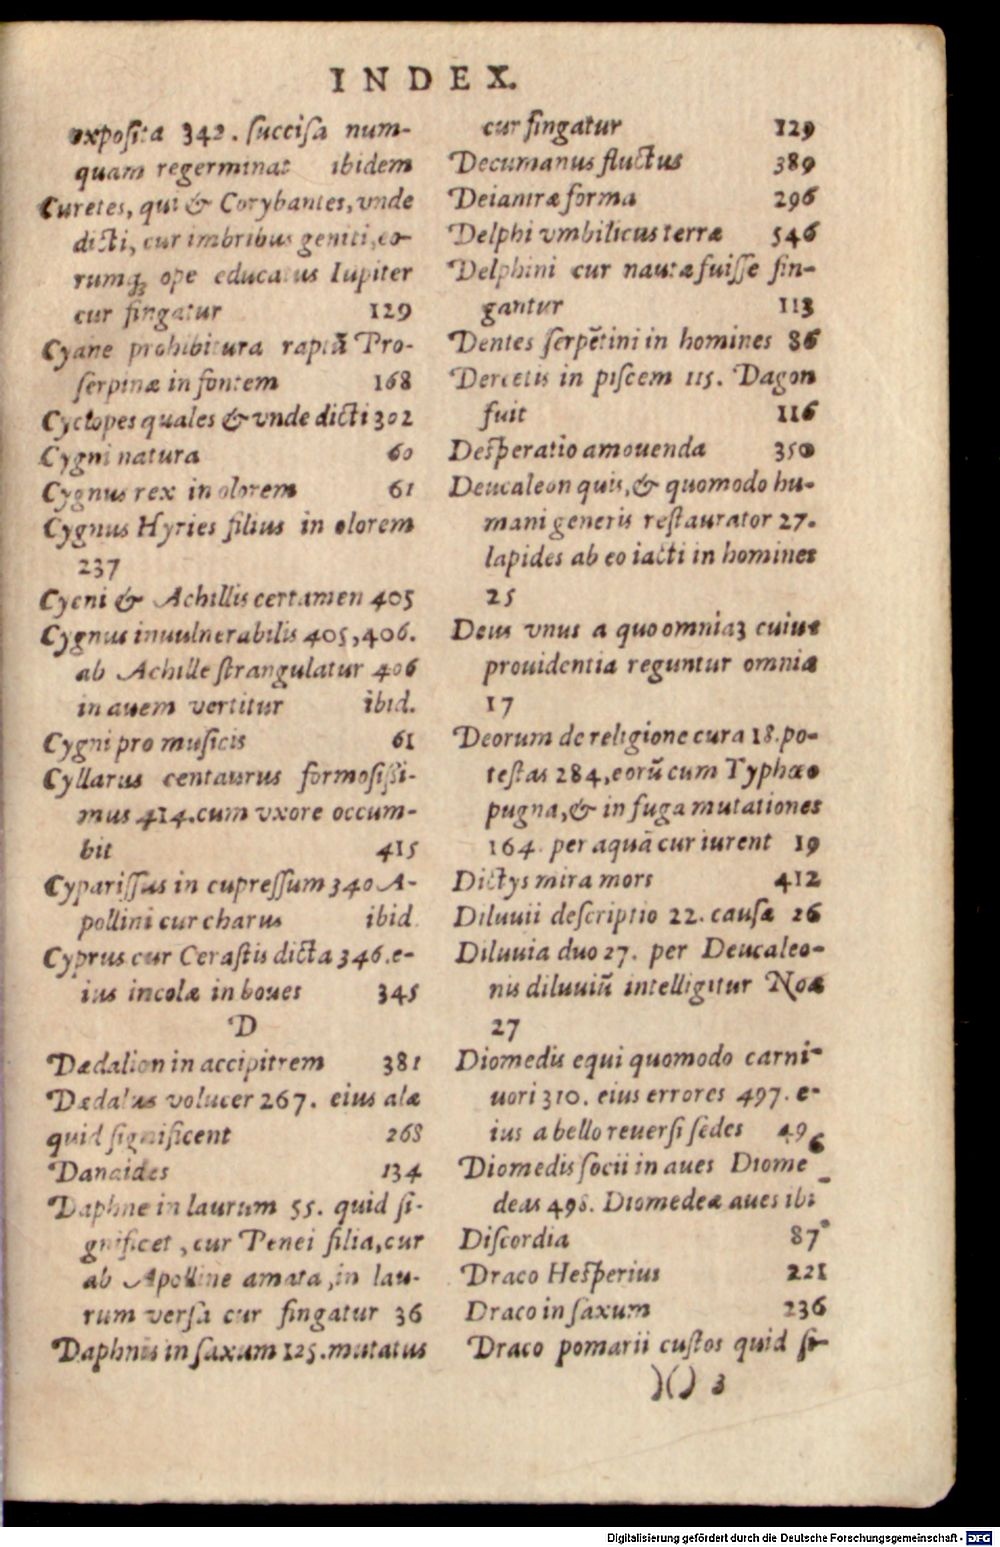 INDEX.
exposita 342. succisa num-
quam regerminat ibidem
Curetes, qui & Corybantes, vnde
dicti, cur imbribus geniti, eo-
rumq; ope educatus Iupiter
cur fingatur 129
Cyane prohibitura raptū Pro-
serpinæ in fontem 168
Cyclopes quales & vnde dicti 302
Cygni natura 60
Cygnus rex in olorem 61
Cygnus Hyries filius in olorem
237
Cycni & Achillis certamen 405
Cygnus inuulnerabilis 405, 406.
ab Achille strangulatur 406
in auem vertitur ibid.
Cygni pro musicis 61
Cyllarus centaurus formosissi-
mus 414. cum vxore occum-
bit 415
Cyparissus in cupressum 340 A-
pollini cur charus ibid
Cyprus cur Cerastis dicta 346. e-
ius incolæ in boues 345
D
Dædalion in accipitrem 381
Dædalus volucer 267. eius alæ
quid significent 268
Danaides 134
Daphne in laurum 55. quid si-
gnificet, cur Penei filia, cur
ab Apolline amata, in lau-
rum versa cur fingatur 36
Daphnis in saxum 125. mutatus
cur fingatur 129
Decumanus fluctus 389
Deianiræ forma 296
Delphi vmbilicus terræ 546
Delphini cur nautæ fuisse fin-
gantur 113
Dentes serpētini in homines 86
Dercetis in piscem 115. Dagon
fuit 116
Desperatio amouenda 350
Deucaleon quis, & quomodo hu-
mani generis restaurator 27.
lapides ab eo iacti in homines
25
Deus vnus a quo omnia; cuius
prouidentia reguntur omnia
17
Deorum de religione cura 18. po-
testas 284, eorū cum Typhœo
pugna, & in fuga mutationes
164. per aquā cur iurent 19
Dictys mira mors 412
Diluuii descriptio 22. causæ 26
Diluuia duo 27. per Deucaleo-
nis diluuiū intelligitur Noæ
27
Diomedis equi quomodo carni-
uori 310. eius errores 497. e-
ius a bello reuersi sedes 496
Diomedis socii in aues Diome-
deas 498. Diomedeæ aues ibi
Discordia 87
Draco Hesperius 221
Draco in saxum 236
Draco pomarii custos quid si-
)() 3
Digitalisierung gefördert durch die Deutsche Forschungsgemeinschaft - DFG